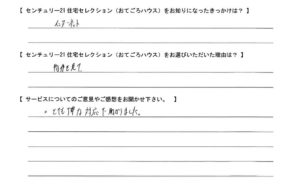 【 センチュリー21 住宅セレクション（おてごろハウス）をお知りになったきっかけは？ 】
【 センチュリー21 住宅セレクション（おてごろハウス）をお選びいただいた理由は？ 】
物件を見て
【 サービスについてのご意見やご感想をお聞かせ下さい。 】
• とても 対応で助かりました。